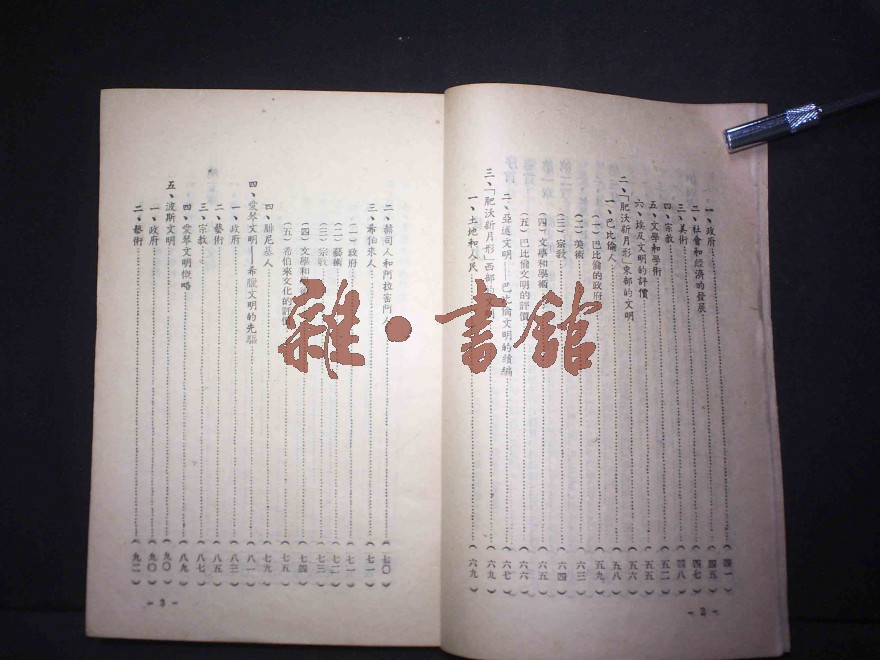 一、政府……（四一）
二、社會和經濟的發展……（四五）
三、美術……（四七）
四、宗教……（四八）
五、文學和學術……（五二）
六、埃及文明的評價……（五五）
二、「肥沃新月形」東部的文明……（五五）
一、巴比倫人……（五八）
（一）巴比倫的政府……（五九）
（二）美術……（六三）
（三）宗教……（六四）
（四）文學和學術……（六五）
（五）巴比倫文明的評價……（六六）
二、亞述文明——巴比倫文明的續編……（六七）
三、「肥沃新月形」西部的……（六九）
一、土地和人民……（六九）
- 2 -
二、赫司人和阿拉密阿人……（七〇）
三、希伯來人……（七一）
（一）政府……（七一）
（二）藝術……（七二）
（三）宗教……（七三）
（四）文學和……（七四）
（五）希伯來文化的評價……（七五）
四、腓尼基人……（七九）
四、愛琴文明——希臘文明的先驅……（八一）
一、政府……（八三）
二、藝術……（八五）
三、宗教……（八七）
四、愛琴文明概略……（八九）
五、波斯文明……（九〇）
一、政府……（九〇）
二、藝術……（九二）
- 3 -
雜·書館